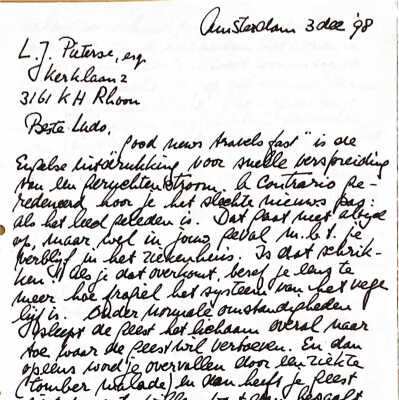 Amsterdam 3 dec '98
L.J. Paterse, esq
Kerklaan 2
3161 KH Rhoon
Beste Ludo,
"Good news travels fast" is de
Engelse uitdrukking voor snelle verspreiding
van een geruchtenstroom. A Contrario ge-
redeneerd hoor je het slechte nieuws pas
als het leed geleden is. Dat gaat niet altijd
op, maar wel in jouw geval m.b.t. je
verblijf in het ziekenhuis. Is dat schrik-
ken! Als je dat overkomt, besef je lang te
meer hoe fragiel het systeem van het vege
lijf is. Onder normale omstandigheden
sleept de geest het lichaam overal naar
toe waar de geest wil vertoeven. En dan
opeens word je overvallen door een ziekte
(tomber malade) en dan heeft je geest